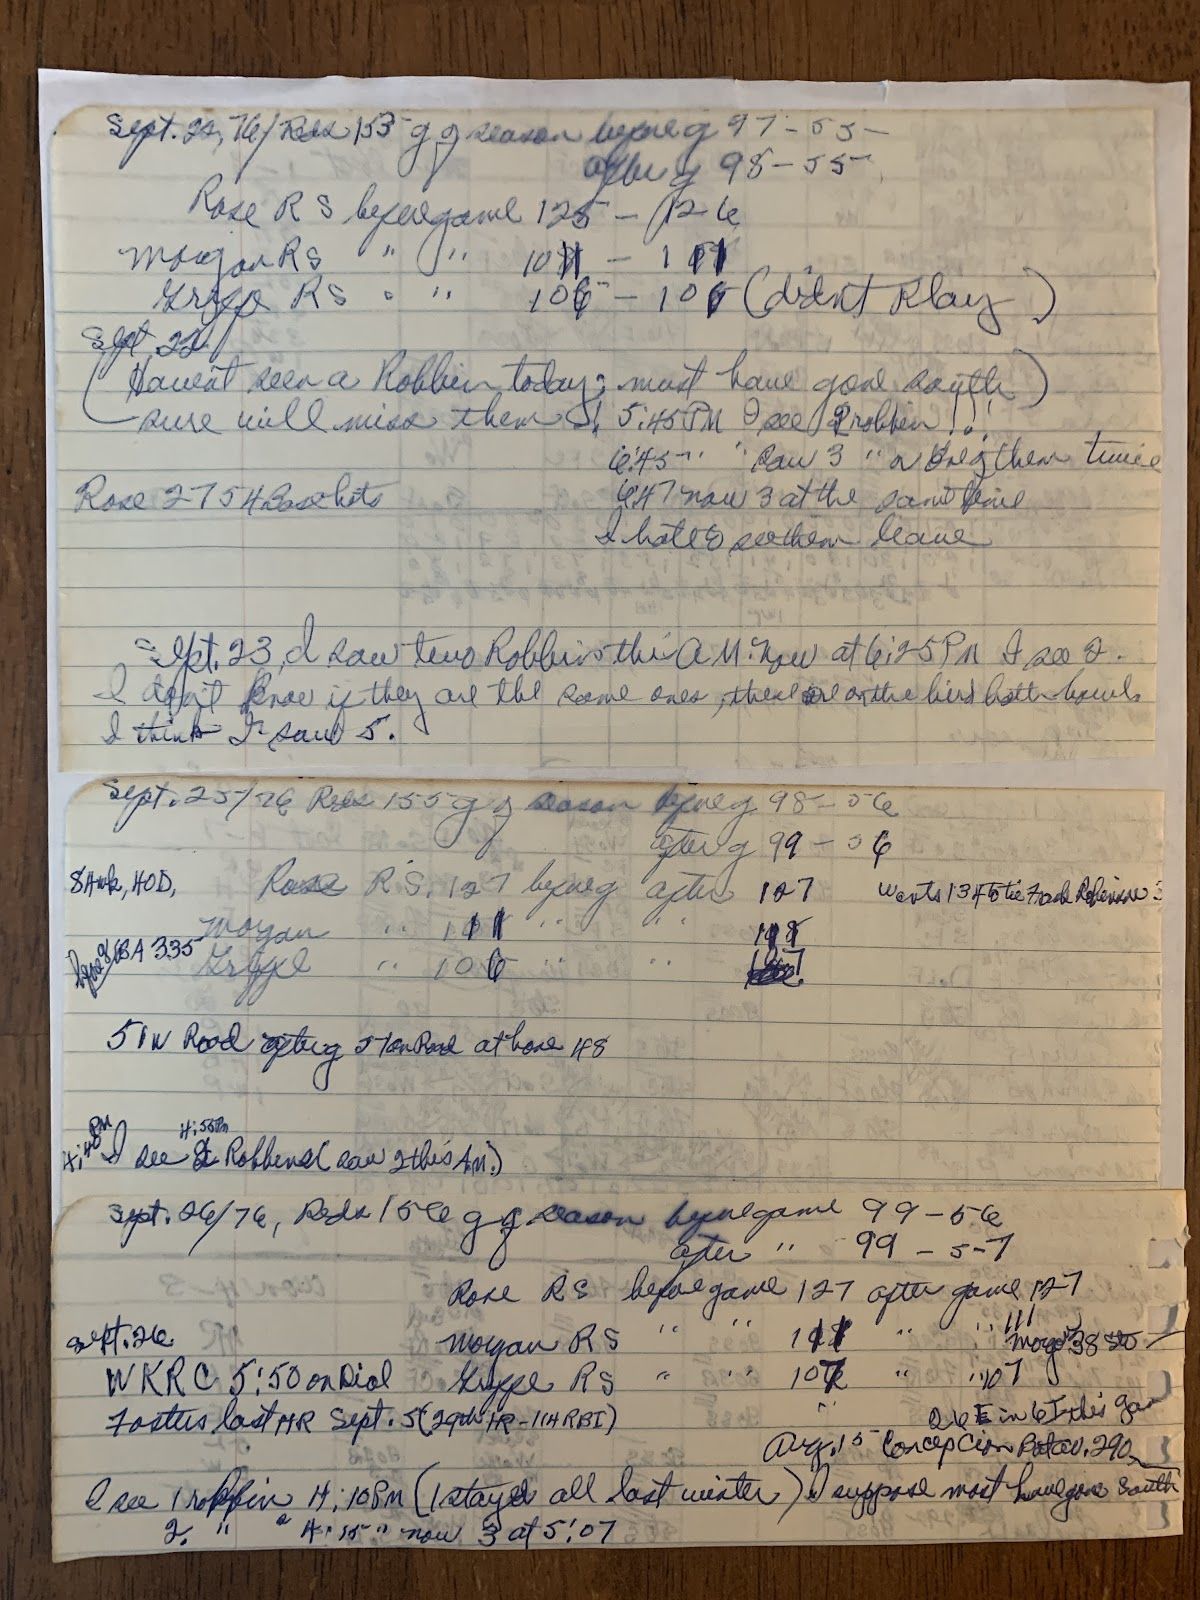 Sept. 22, 76/ Reds 153 g of season before g 97-55
after g 98-55
Rose RS before game 125 - 126
Morgan RS " " 111 - 111
Griffe RS " " 106 - 106 (didnt Play)
Sept. 22
(Havent seen a Robbin today; must have gone south)
sure will miss them 5:45 PM I see 2 robbin!!!
6:45 " " saw 3 " or one of them twice
Rose 2754 Base hits 6:47 now 3 at the same time
I hate to see them leave
Sept. 23, I saw two Robbins this A.M. Now at 6:25 PM I see 2.
I don't know if they are the same ones, these are on the bird bath bowl.
I think I saw 5.
Sept. 25/76 Reds 155 g of season before g 98-56
after g 99-56
Rose RS. 127 before g after 127 wants 134 to tie Frank Robinson
Morgan " 111 " "
BA 335 Griffe " 106 " " 107
51 W Road after g 51 on Road at home 48
4:48 PM I see Robbins (saw 2 this A.M.) 4:55 PM
Sept. 26/76, Reds 156 g of season before game 99-56
after " 99-57
Rose RS before game 127 after game 127
Sept. 26 Morgan RS " " 111 " " 111
WKRC 5:50 on Dial Griffe RS " " 107 " " 107
Fosters last HR Sept. 5 (29th HR-114 RBI)
6 E in 6 I this Gam
Aug. 15 Concepcion Batav. 290
I see 1 robbin 4:10 PM (1 stayed all last winter) I suppose most have gone South
2. " " 4:15 " now 3 at 5:07